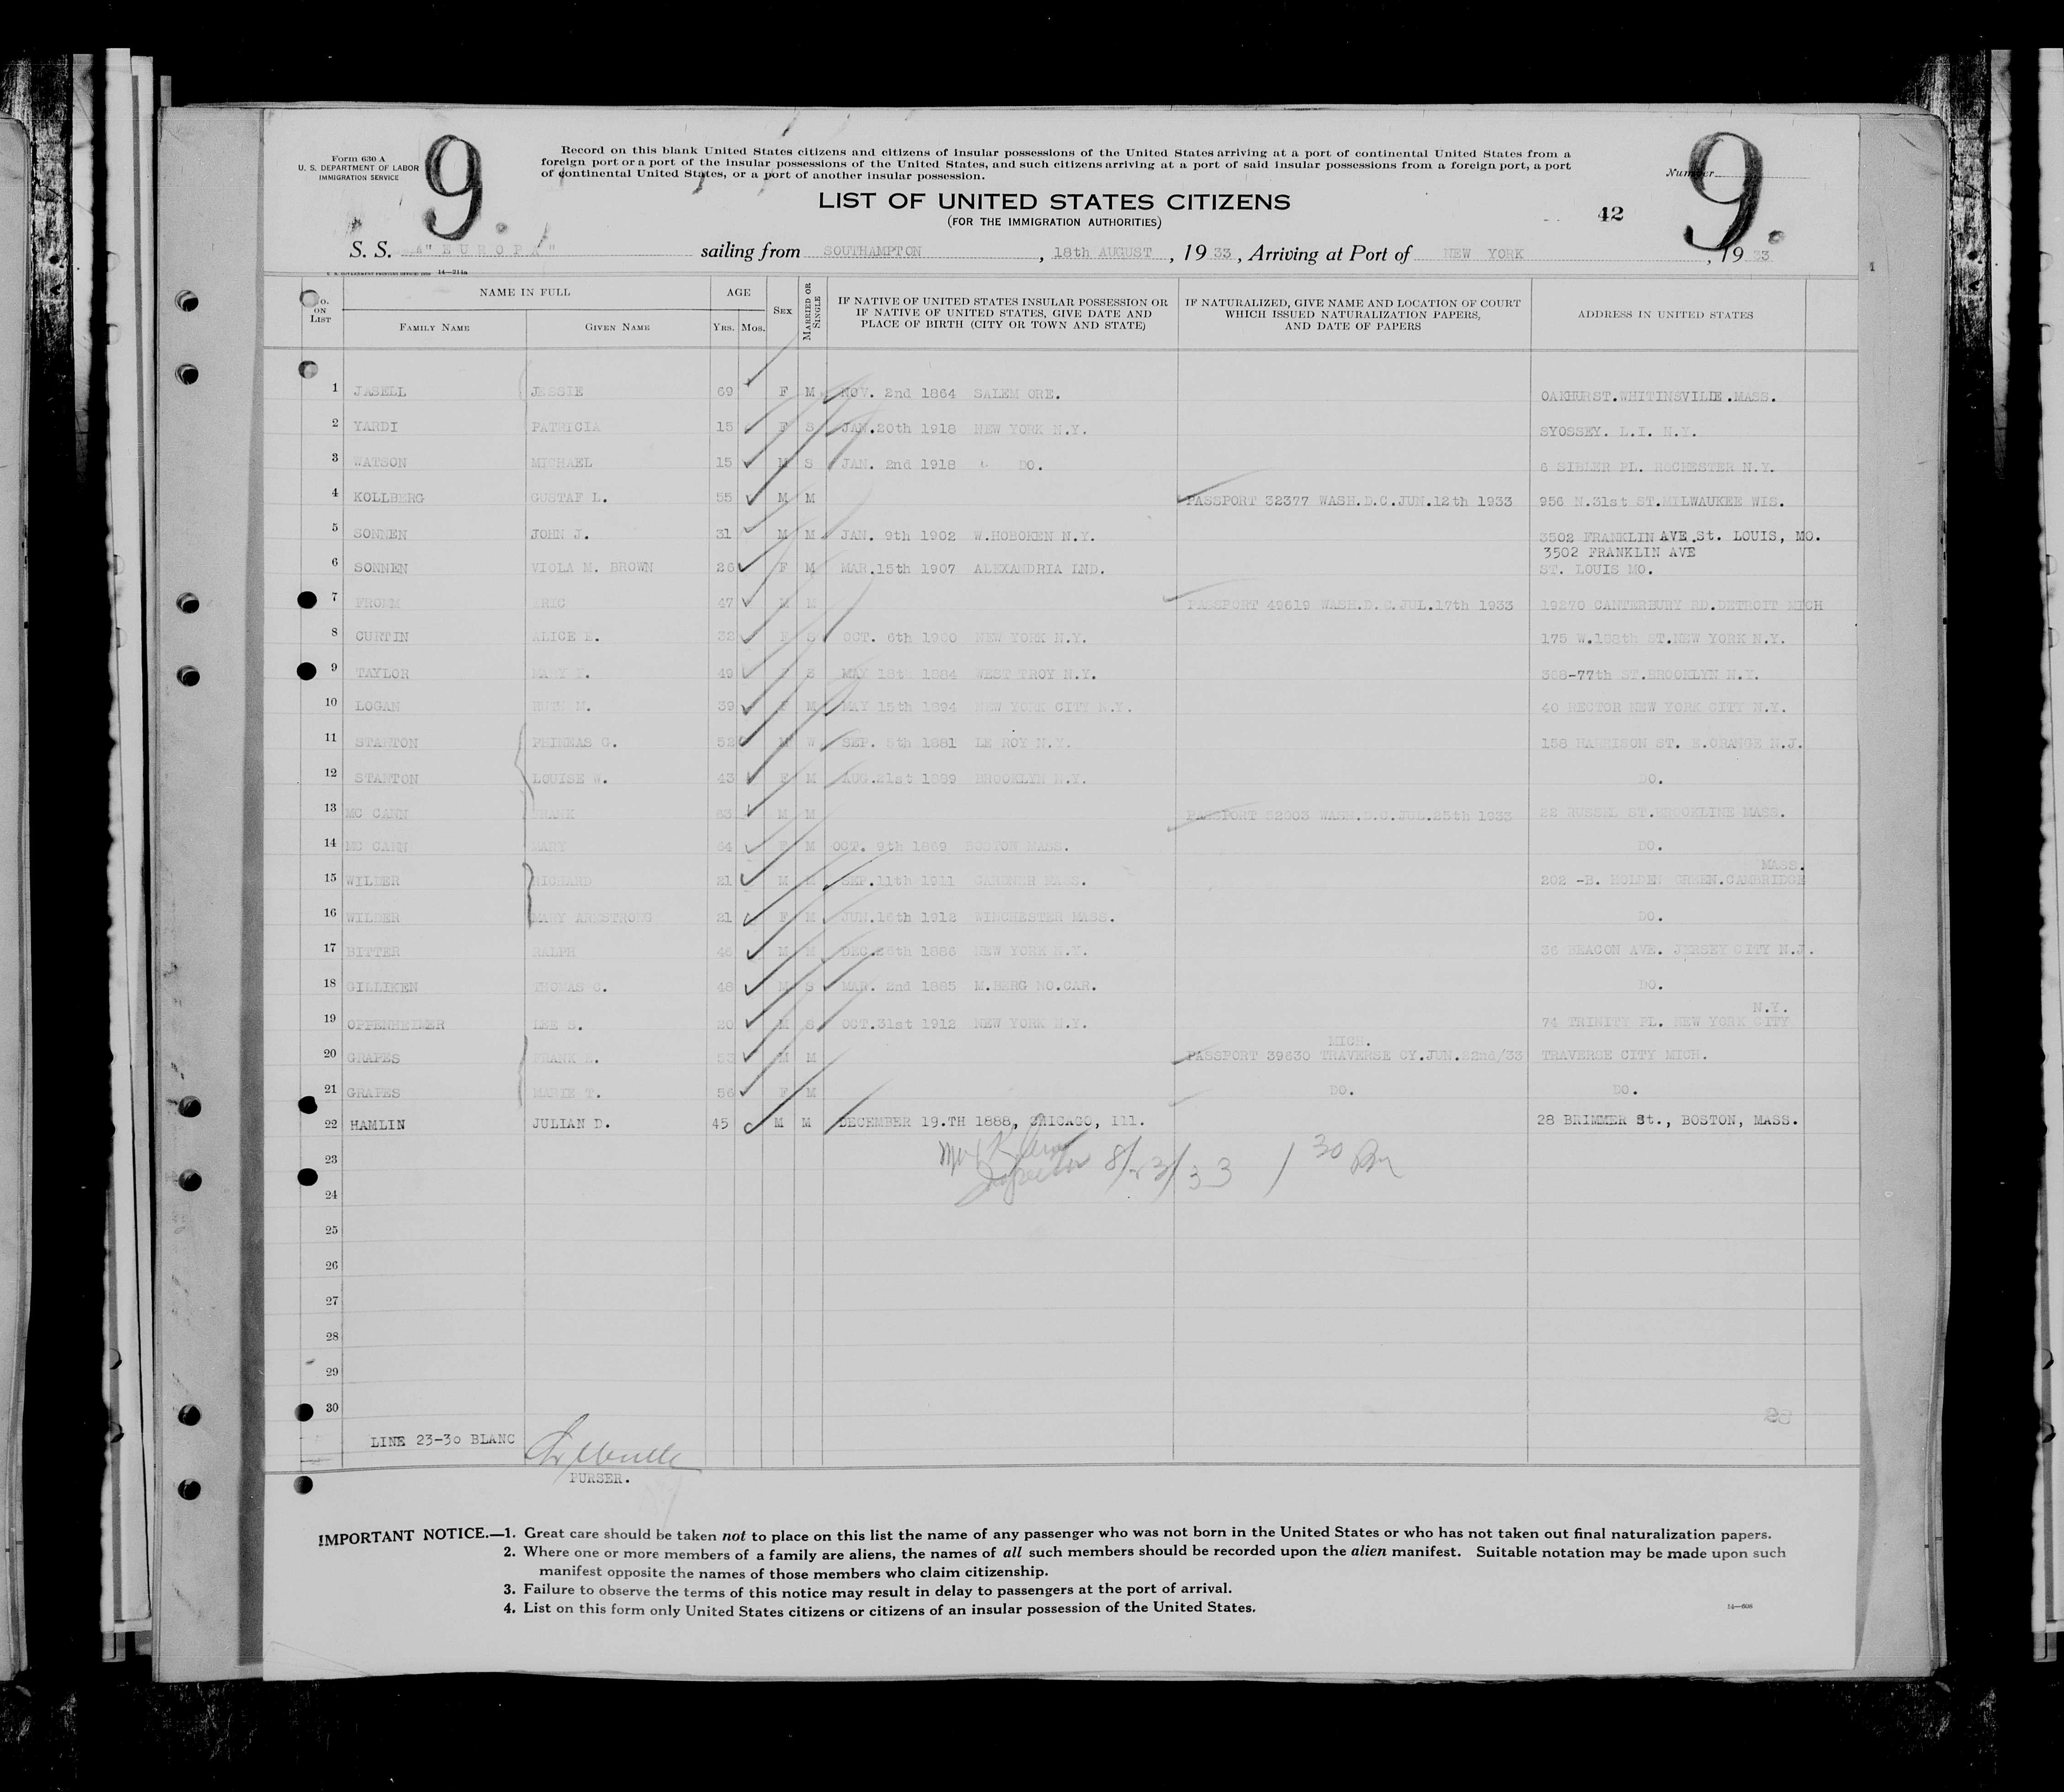 Form 630 A
U. S. DEPARTMENT OF LABOR
IMMIGRATION SERVICE
9.
Record on this blank United States citizens and citizens of insular possessions of the United States arriving at a port of continental United States from a
foreign port or a port of the insular possessions of the United States, and such citizens arriving at a port of said insular possessions from a foreign port, a port
of continental United States, or a port of another insular possession.
Number
9.
LIST OF UNITED STATES CITIZENS
(FOR THE IMMIGRATION AUTHORITIES)
42
S. S. "EUROPA" sailing from SOUTHAMPTON, 18th AUGUST, 1933, Arriving at Port of NEW YORK, 1933
14—214a
No. ON LIST
NAME IN FULL
FAMILY NAME
GIVEN NAME
AGE
YRS. MOS.
SEX
MARRIED OR SINGLE
IF NATIVE OF UNITED STATES INSULAR POSSESSION OR
IF NATIVE OF UNITED STATES, GIVE DATE AND
PLACE OF BIRTH (CITY OR TOWN AND STATE)
IF NATURALIZED, GIVE NAME AND LOCATION OF COURT
WHICH ISSUED NATURALIZATION PAPERS,
AND DATE OF PAPERS
ADDRESS IN UNITED STATES
1 JASELL JESSIE 69 F M NOV. 2nd 1864 SALEM ORE. OAKHURST.WHITINSVILLE.MASS.
2 YARDI PATRICIA 15 F S JAN.20th 1918 NEW YORK N.Y. SYOSSEY. L.I. N.Y.
3 WATSON MICHAEL 15 M S JAN. 2nd 1918 DO. 6 SIBLER PL. ROCHESTER N.Y.
4 KOLLBERG GUSTAF L. 55 M M PASSPORT 32377 WASH.D.C.JUN.12th 1933 956 N.31st ST.MILWAUKEE WIS.
5 SONNEN JOHN J. 31 M M JAN. 9th 1902 W.HOBOKEN N.Y. 3502 FRANKLIN AVE.St. LOUIS, MO.
3502 FRANKLIN AVE
6 SONNEN VIOLA M. BROWN 26 F M MAR.15th 1907 ALEXANDRIA IND. ST. LOUIS MO.
7 FROMM ERIC 47 M M PASSPORT 49619 WASH.D.C.JUL.17th 1933 19270 CANTERBURY RD.DETROIT MICH
8 CURTIN ALICE E. 32 F S OCT. 6th 1900 NEW YORK N.Y. 175 W.188th ST.NEW YORK N.Y.
9 TAYLOR MARY 49 F S MAY 18th 1884 WEST TROY N.Y. 368-77th ST.BROOKLYN N.Y.
10 LOGAN RUTH M. 39 F M MAY 15th 1894 NEW YORK CITY N.Y. 40 RECTOR NEW YORK CITY N.Y.
11 STANTON PHINEAS G. 52 M W SEP. 5th 1881 LE ROY N.Y. 158 HARRISON ST. E.ORANGE N.J.
12 STANTON LOUISE W. 43 F M AUG.21st 1889 BROOKLYN N.Y. DO.
13 MC CANN FRANK 63 M M PASSPORT 52003 WASH.D.C.JUL.25th 1933 22 RUSSEL ST.BROOKLINE MASS.
14 MC CANN MARY 64 F M OCT. 9th 1869 BOSTON MASS. DO.
MASS.
15 WILDER RICHARD 21 M M SEP.11th 1911 GARDNER MASS. 202 -B. HOLDEN GREEN.CAMBRIDGE
16 WILDER MARY ARMSTRONG 21 F M JUN.16th 1912 WINCHESTER MASS. DO.
17 BITTER RALPH 46 M M DEC.26th 1886 NEW YORK N.Y. 36 BEACON AVE. JERSEY CITY N.J.
18 GILLIKEN THOMAS C. 48 M S MAR. 2nd 1885 M.BERG NO.CAR. DO.
N.Y.
19 OPPENHEIMER LEE S. 20 M S OCT.31st 1912 NEW YORK N.Y. 74 TRINITY PL. NEW YORK CITY
MICH.
20 GRAPES FRANK M M PASSPORT 39630 TRAVERSE CY.JUN.22nd/33 TRAVERSE CITY MICH.
21 GRAPES MARIE T. 56 F M DO. DO.
22 HAMLIN JULIAN D. 45 M M DECEMBER 19.TH 1888, CHICAGO, Ill. 28 BRIMMER St., BOSTON, MASS.
23
Inspector 8/23/33 1 30 Pm
24
25
26
27
28
29
30
LINE 23-30 BLANC
PURSER.
IMPORTANT NOTICE.—1. Great care should be taken not to place on this list the name of any passenger who was not born in the United States or who has not taken out final naturalization papers.
2. Where one or more members of a family are aliens, the names of all such members should be recorded upon the alien manifest. Suitable notation may be made upon such
manifest opposite the names of those members who claim citizenship.
3. Failure to observe the terms of this notice may result in delay to passengers at the port of arrival.
4. List on this form only United States citizens or citizens of an insular possession of the United States.
14—608